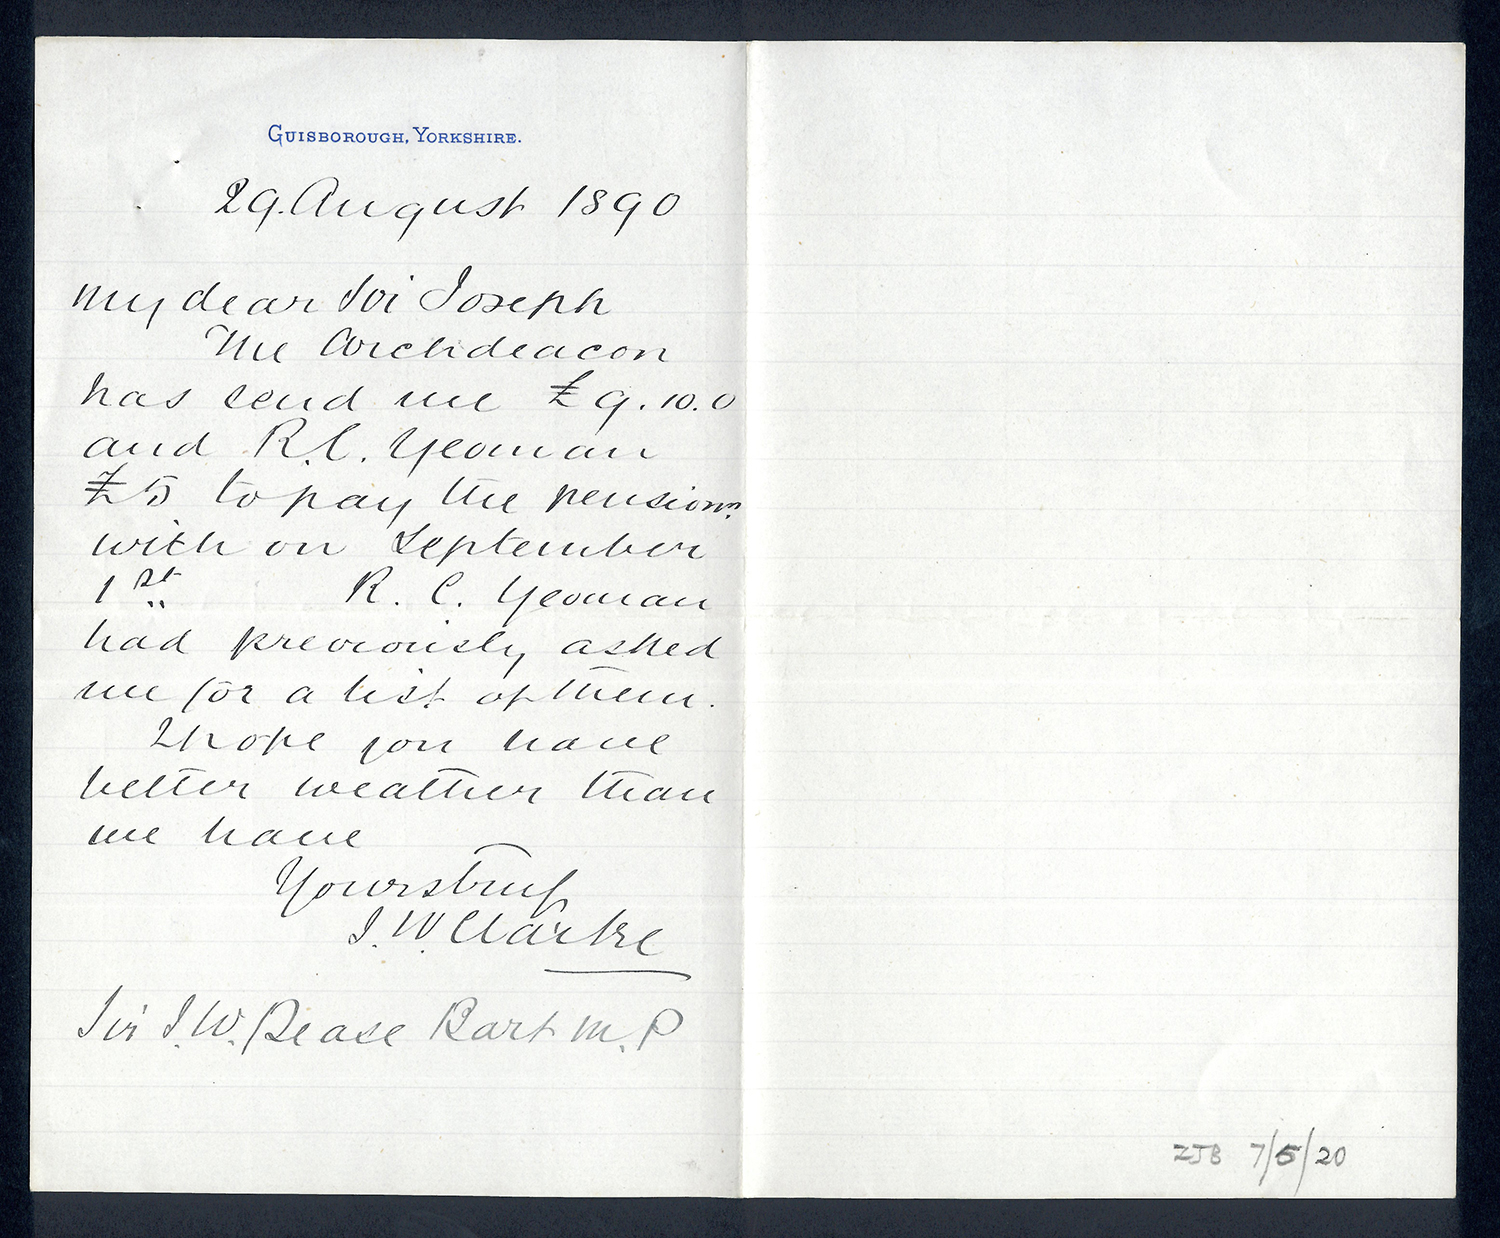 GUISBOROUGH, YORKSHIRE.
29. August 1890
My dear Sir Joseph
The Archdeacon
has send me £9.10.0
and R.C. Yeoman
£5 to pay the pensions
with on September
1st R. C. Yeoman
had previously asked
me for a list of them.
I hope you have
better weather than
we have
Yours truly
J. W. Clarke
Sir J. W. Pease Bart M.P
ZJB 7/5/20